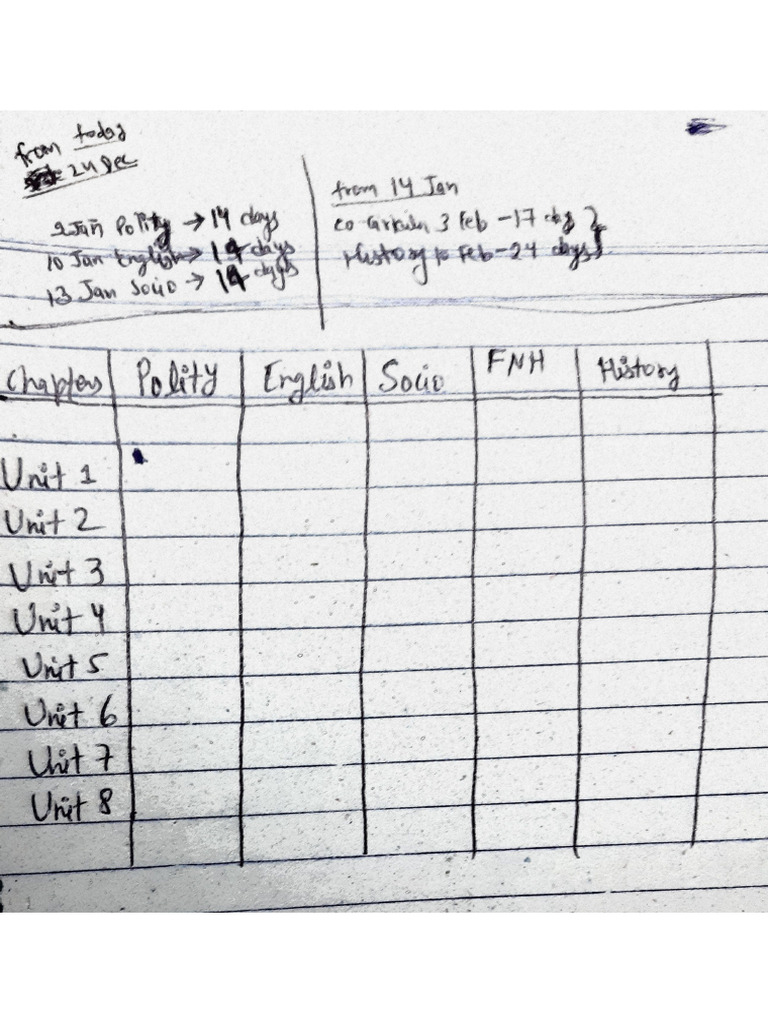 from today
24 Dec
9 Jan Polity → 14 days
10 Jan English → 14 days
13 Jan Socio → 14 days
from 14 Jan
3 Feb - 17 days
History 10 Feb - 24 days
Chapters Polity English Socio FNH History
Unit 1
Unit 2
Unit 3
Unit 4
Unit 5
Unit 6
Unit 7
Unit 8